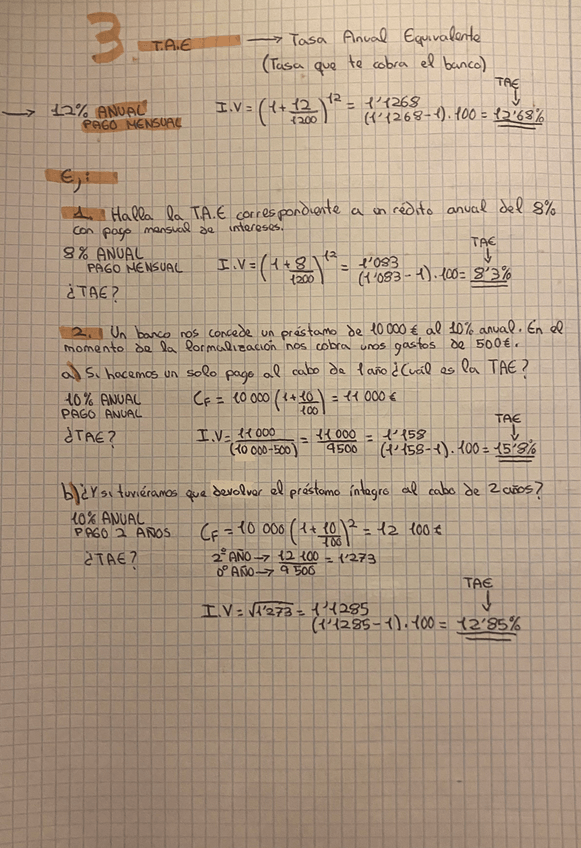 3. T.A.E → Tasa Anual Equivalente
(Tasa que te cobra el banco)
→ 12% ANUAL
PAGO MENSUAL
I.V = (1 + 12/1200)^12 = 1'1268
(1'1268 - 1) · 100 = 12'68%
TAE
Ej:
1. Halla la T.A.E correspondiente a un rédito anual del 8%
con pago mensual de intereses.
8% ANUAL
PAGO MENSUAL
¿TAE?
I.V = (1 + 8/1200)^12 = 1'083
(1'083 - 1) · 100 = 8'3%
TAE
2. Un banco nos concede un préstamo de 10 000 € al 10% anual. En el
momento de la formalización nos cobra unos gastos de 500€.
a) Si hacemos un solo pago al cabo de 1 año ¿Cuál es la TAE?
10% ANUAL
PAGO ANUAL
¿TAE?
CF = 10 000 (1 + 10/100) = 11 000 €
I.V = 11 000/(10 000-500) = 11 000/9500 = 1'158
(1'158 - 1) · 100 = 15'8%
TAE
b) ¿Y si tuviéramos que devolver el préstamo íntegro al cabo de 2 años?
10% ANUAL
PAGO 2 AÑOS
¿TAE?
CF = 10 000 (1 + 10/100)^2 = 12 100 €
2º AÑO → 12 100
0º AÑO → 9 500
= 1'273
I.V = √1'273 = 1'1285
(1'1285 - 1) · 100 = 12'85%
TAE